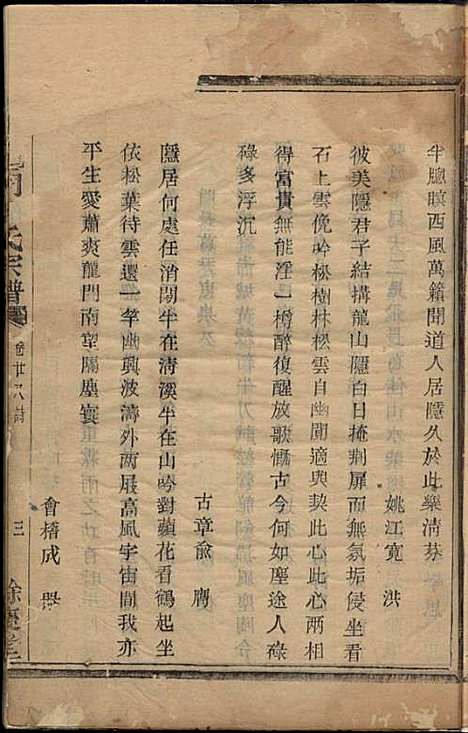 半牕暝西風萬籟聞道人居隱久於此樂淸芬
姚江寛　洪
彼美隱君子結搆龍山隱白日掩荆扉而無氛垢侵坐看
石上雲俛吟松樹林松雲自幽閒適與契此心此心兩相
得富貴無能淫一樽醉復醒放歌慨古今何如塵途人碌
碌多浮沉
古章兪　膺
隱居何處任消閒半在淸溪半在山吟對蘋花看鶴起坐
依松葉待雲還一竿幽興波濤外两屐高風宇宙間我亦
平生愛蕭爽龍門南望隔塵寰
會稽成
氏宗譜
卷廿八詩
三